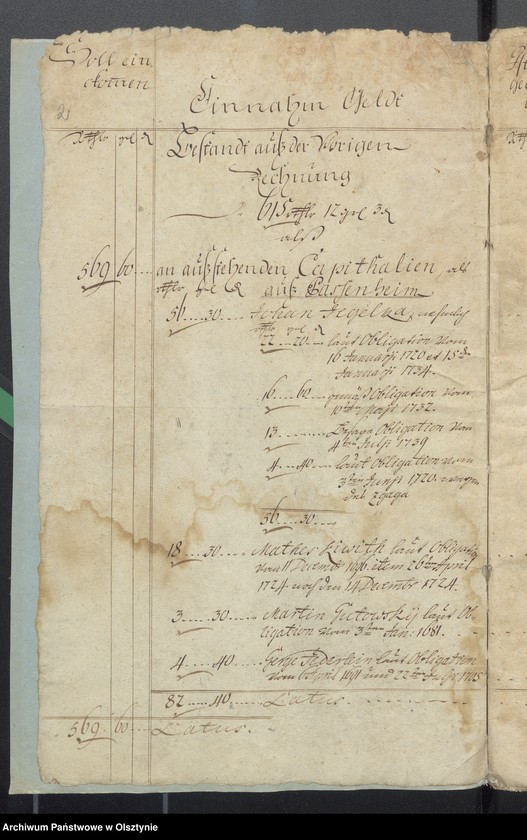 Soll ein
komen
Einnahm Geldt
Rthlr grl d
Bestandt auß der Vorigen
Rechnung
615 rthlr 12 grl 3 d
alß
569 60 an außstehenden Capithalien, alß
rthlr grl d auß Passenheim
56 30 Johan Jegelka, nehmlich
rthlr grl d
22 20 laut Obligation vom
16 Januarij 1720 et 15
Januarij 1734.
16 60 gemäß Obligation vom
10 Maji 1732.
13 Obligation vom
4 Julij 1739
4 40 laut Obligation vom
3 Junij 1720.
56 30
18 30 Mathes laut Obligation
vom 11 Decembr 1696. item 26 April
1724 noch den 14 Decembr 1724.
3 30 Martin Gutowskij laut Ob-
ligation vom 3 Jan: 1681.
4 40 laut Obligation
vom April 1691 und 22
82 40 Latus.
569 60 Latus.
Archiwum Państwowe w Olsztynie